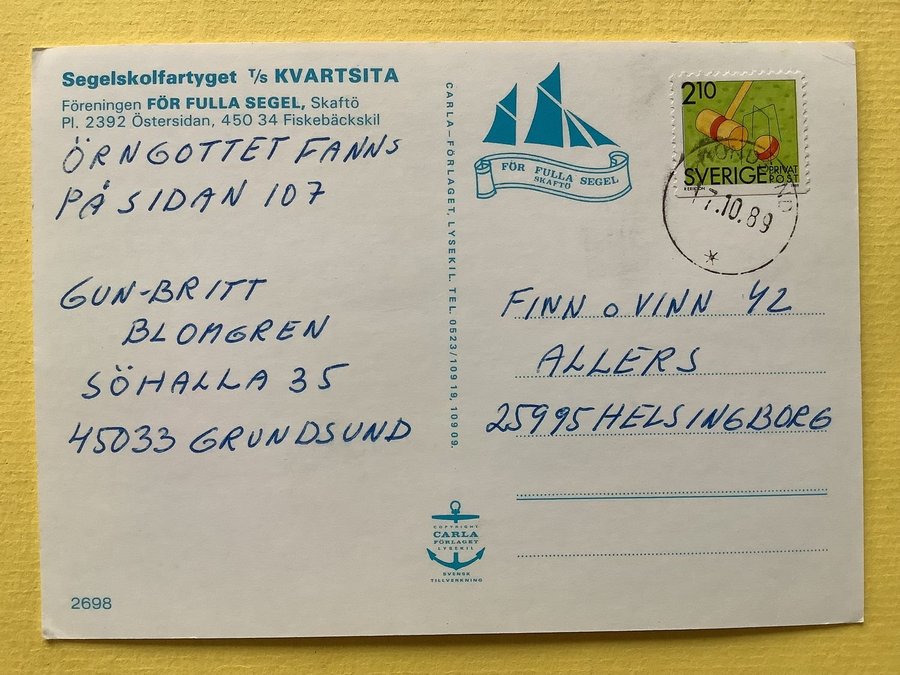 Segelskolfartyget T/s KVARTSITA
Föreningen FÖR FULLA SEGEL, Skaftö
Pl. 2392 Östersidan, 450 34 Fiskebäckskil
ÖRNGOTTET FANNS
PÅ SIDAN 107
GUN-BRITT
BLOMGREN
SÖHALLA 35
45033 GRUNDSUND
2698
CARLA-FÖRLAGET, LYSEKIL. TEL. 0523/109 19, 109 09.
FÖR FULLA SEGEL
SKAFTÖ
210
SVERIGE PRIVAT
POST
17.10.89
FINN o VINN 42
ALLERS
25995 HELSINGBORG
COPYRIGHT
CARLA
FÖRLAGET
LYSEKIL
SVENSK
TILLVERKNING